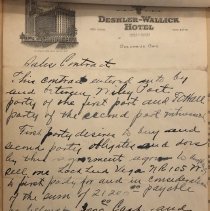 DESHLER-WALLICK
HOTEL
COLUMBUS, OHIO
Sales Contract
This contract entered into by
and between Wiley Post
party of the first part and F.C. Hall
party of the second part
First party desires to buy and
second party obligates and does
by this agreement agree to
sell one Lockheed Vega N.R. 105
to first party for and in consideration
of the sum of 21,200 payable
cash and